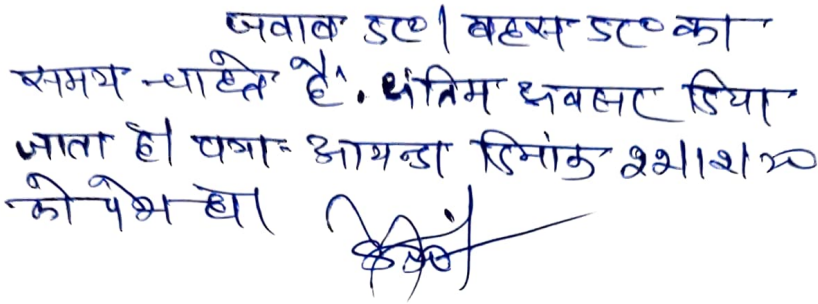 जवाब ड₹० । बहस ड₹० का
समय चाहते हैं. अंतिम अवसर दिया
जाता है। पत्रा= आयन्दा दिनांक २२/१२/२०
को पेश हो।